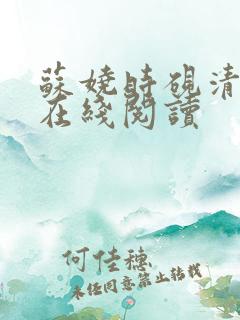 蘇嬈時硯清
在綫閱讀
何佳穗
未经同意禁止转载